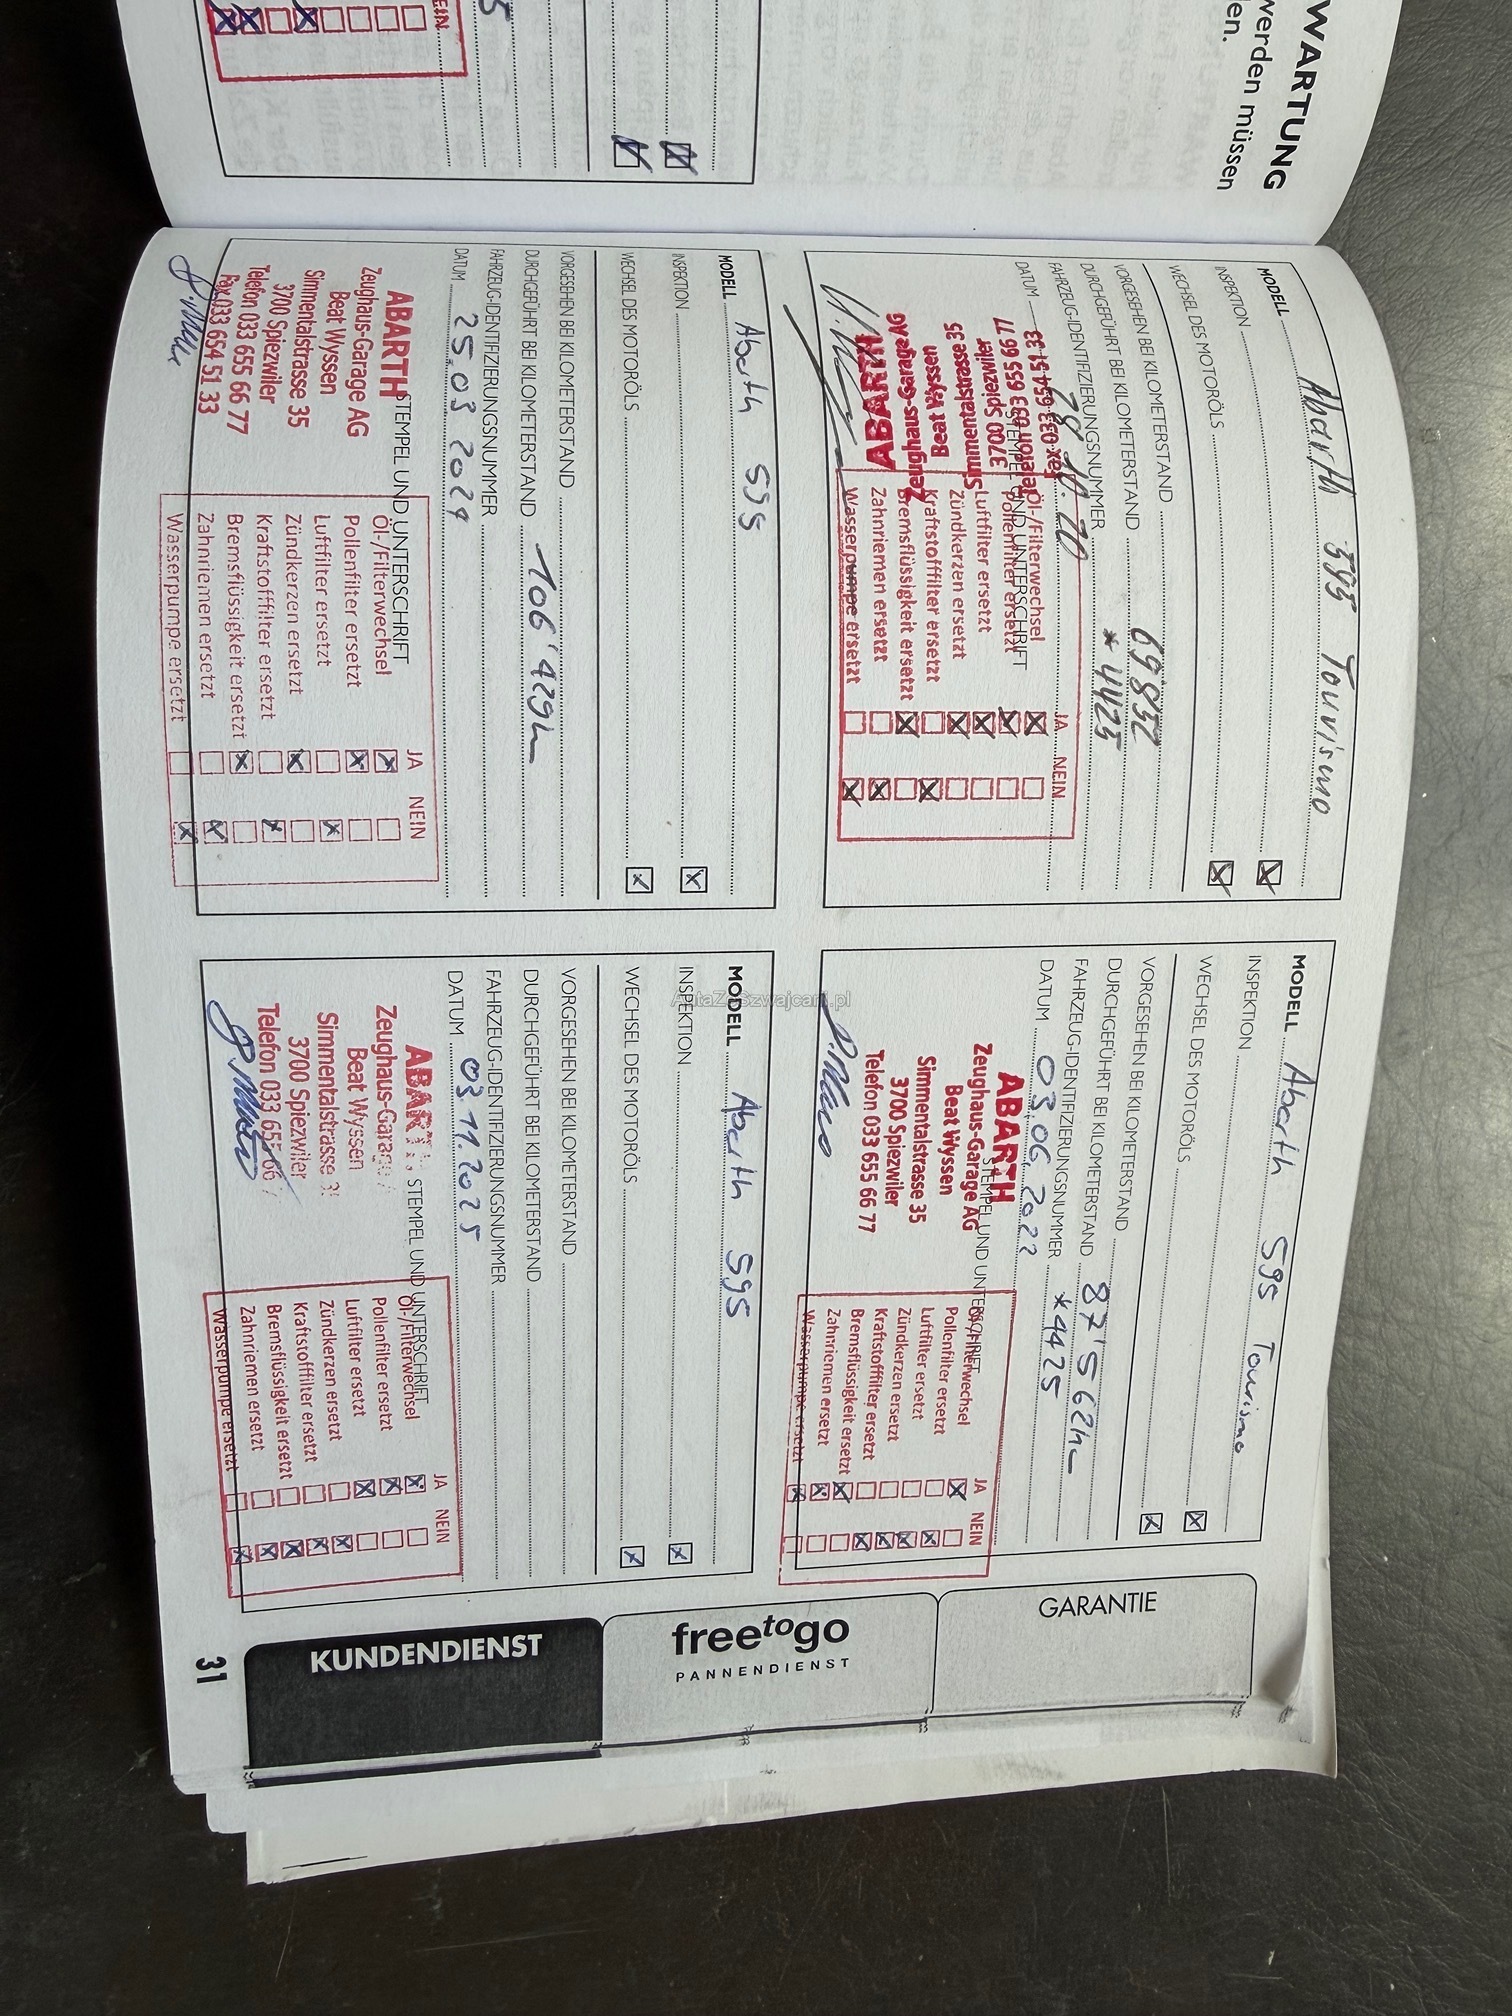 WARTUNG
werden müssen
en.
EIN
MODELL Abarth 595 Tourismo
INSPEKTION
WECHSEL DES MOTORÖLS
VORGESEHEN BEI KILOMETERSTAND
DURCHGEFÜHRT BEI KILOMETERSTAND 69'832
FAHRZEUG-IDENTIFIZIERUNGSNUMMER *4425
DATUM
STEMPEL UND UNTERSCHRIFT
ABARTH
Zeughaus-Garage AG
Beat Wyssen
Simmentalstrasse 35
3700 Spiezwiler
Telefon 033 655 66 77
Fax 033 654 51 33
JA NEIN
Öl-/Filterwechsel
Pollenfilter ersetzt
Luftfilter ersetzt
Zündkerzen ersetzt
Kraftstofffilter ersetzt
Bremsflüssigkeit ersetzt
Zahnriemen ersetzt
Wasserpumpe ersetzt
MODELL Abarth 595 Tourismo
INSPEKTION
WECHSEL DES MOTORÖLS
VORGESEHEN BEI KILOMETERSTAND
DURCHGEFÜHRT BEI KILOMETERSTAND 87'562km
FAHRZEUG-IDENTIFIZIERUNGSNUMMER *4425
DATUM 03.06.2022
STEMPEL UND UNTERSCHRIFT
ABARTH
Zeughaus-Garage AG
Beat Wyssen
Simmentalstrasse 35
3700 Spiezwiler
Telefon 033 655 66 77
JA NEIN
Öl-/Filterwechsel
Pollenfilter ersetzt
Luftfilter ersetzt
Zündkerzen ersetzt
Kraftstofffilter ersetzt
Bremsflüssigkeit ersetzt
Zahnriemen ersetzt
Wasserpumpe ersetzt
MODELL Abarth 595
INSPEKTION
WECHSEL DES MOTORÖLS
VORGESEHEN BEI KILOMETERSTAND
DURCHGEFÜHRT BEI KILOMETERSTAND 106'429km
FAHRZEUG-IDENTIFIZIERUNGSNUMMER
DATUM 25.03.2024
STEMPEL UND UNTERSCHRIFT
ABARTH
Zeughaus-Garage AG
Beat Wyssen
Simmentalstrasse 35
3700 Spiezwiler
Telefon 033 655 66 77
Fax 033 654 51 33
JA NEIN
Öl-/Filterwechsel
Pollenfilter ersetzt
Luftfilter ersetzt
Zündkerzen ersetzt
Kraftstofffilter ersetzt
Bremsflüssigkeit ersetzt
Zahnriemen ersetzt
Wasserpumpe ersetzt
MODELL Abarth 595
INSPEKTION
WECHSEL DES MOTORÖLS
VORGESEHEN BEI KILOMETERSTAND
DURCHGEFÜHRT BEI KILOMETERSTAND
FAHRZEUG-IDENTIFIZIERUNGSNUMMER
DATUM 03.11.2025
STEMPEL UND UNTERSCHRIFT
ABARTH
Zeughaus-Garage
Beat Wyssen
Simmentalstrasse 35
3700 Spiezwiler
Telefon 033 655 66 7
JA NEIN
Öl-/Filterwechsel
Pollenfilter ersetzt
Luftfilter ersetzt
Zündkerzen ersetzt
Kraftstofffilter ersetzt
Bremsflüssigkeit ersetzt
Zahnriemen ersetzt
Wasserpumpe ersetzt
GARANTIE
freetogo
PANNENDIENST
KUNDENDIENST
31
AutaZeSzwajcarii.pl